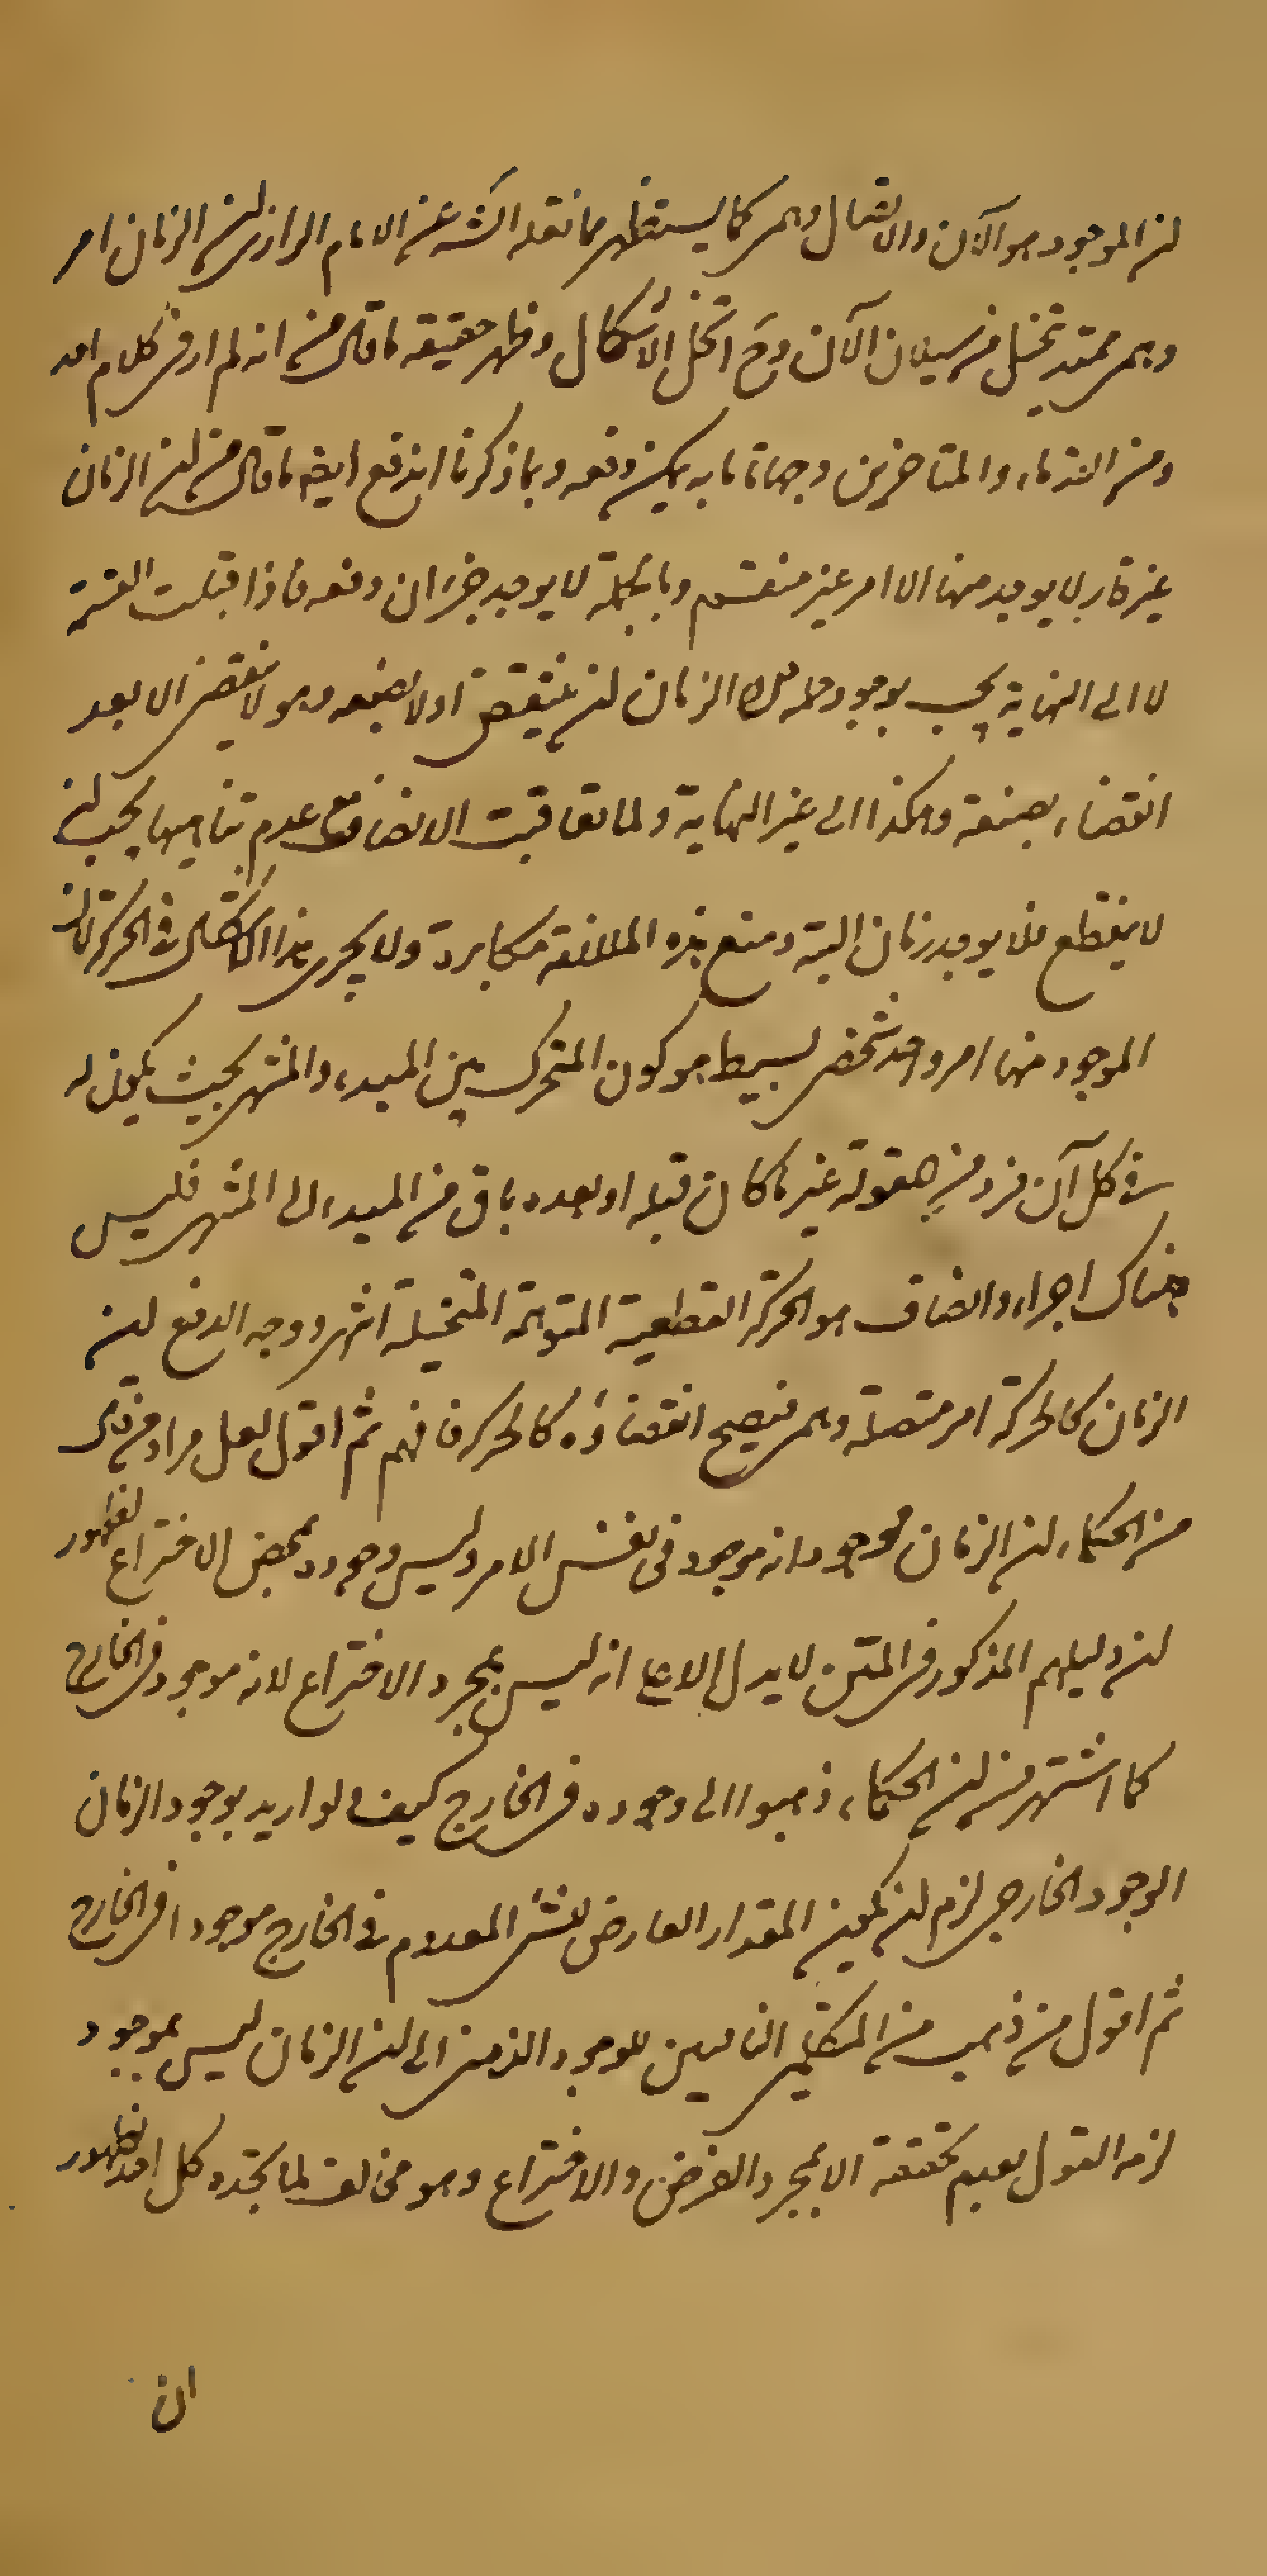 ان الموجود هو الآن والاتصال وهمى كما يستظهر ما نقله الش عن الامام الرازى ان الزمان امر
وهمى ممتد يتخيل من سيلان الآن وح انحل الاشكال وظهر حقيقة ما قال من انه لم ار فى كلام احد
ومن القدماء والمتاخرين وجها تاما به يمكن دفعه وبما ذكرنا اندفع ايضا ما قال من ان الزمان
غير قار لا يوجد منها الا امر غير منقسم وبالجملة لا يوجد جزان دفعه فاذا قبلت القسمة
لا الى النهاية يجب بوجود الزمان ان ينقضى اولا نصفه وهو لا ينقضى الا بعد
انقضاء نصفه وهكذا الى غير النهاية ولما تعاقبت الانصاف مع عدم تناهيها يجب ان
لا ينقطع فلا يوجد زمان البتة ومنع هذه الملازمة مكابرة ولا يجرى هذا الاشكال فى الحركة لان
الموجود منها امر واحد شخصى بسيط هو كون المتحرك بين المبدء والمنتهى بحيث يكون له
فى كل آن فرد من مقولة غير ما كان قبله او بعده باق من المبدء الى المنتهى فليس
هناك اجزاء وانصاف هو الحركة القطعية المتوهمة المتخيلة انتهى ووجه الدفع ان
الزمان كالحركة امر متصلة وهمى فيصح انقضاؤه كالحركة فافهم ثم اقول لعل مراد من قال
من الحكماء ان الزمان موجود انه موجود فى نفس الامر وليس وجوده بمحض الاختراع لظهور
ان دليلهم المذكور فى المتن لا يدل الا على انه ليس بمجرد الاختراع لانه موجود فى الخارج
كما اشتهر من ان الحكماء ذهبوا الى وجوده فى الخارج كيف لو اريد بوجود الزمان
الوجود الخارجى لزم ان يكون المقدار العارض للشئ المعدوم فى الخارج موجودا فى الخارج
ثم اقول من ذهب من المتكلمى النافين للوجود الذهنى الى ان الزمان ليس بموجود
لزمه القول بعدم تحققه الا بمجرد الفرض والاختراع وهو مخالف لما يجده كل احد لظهور
ان